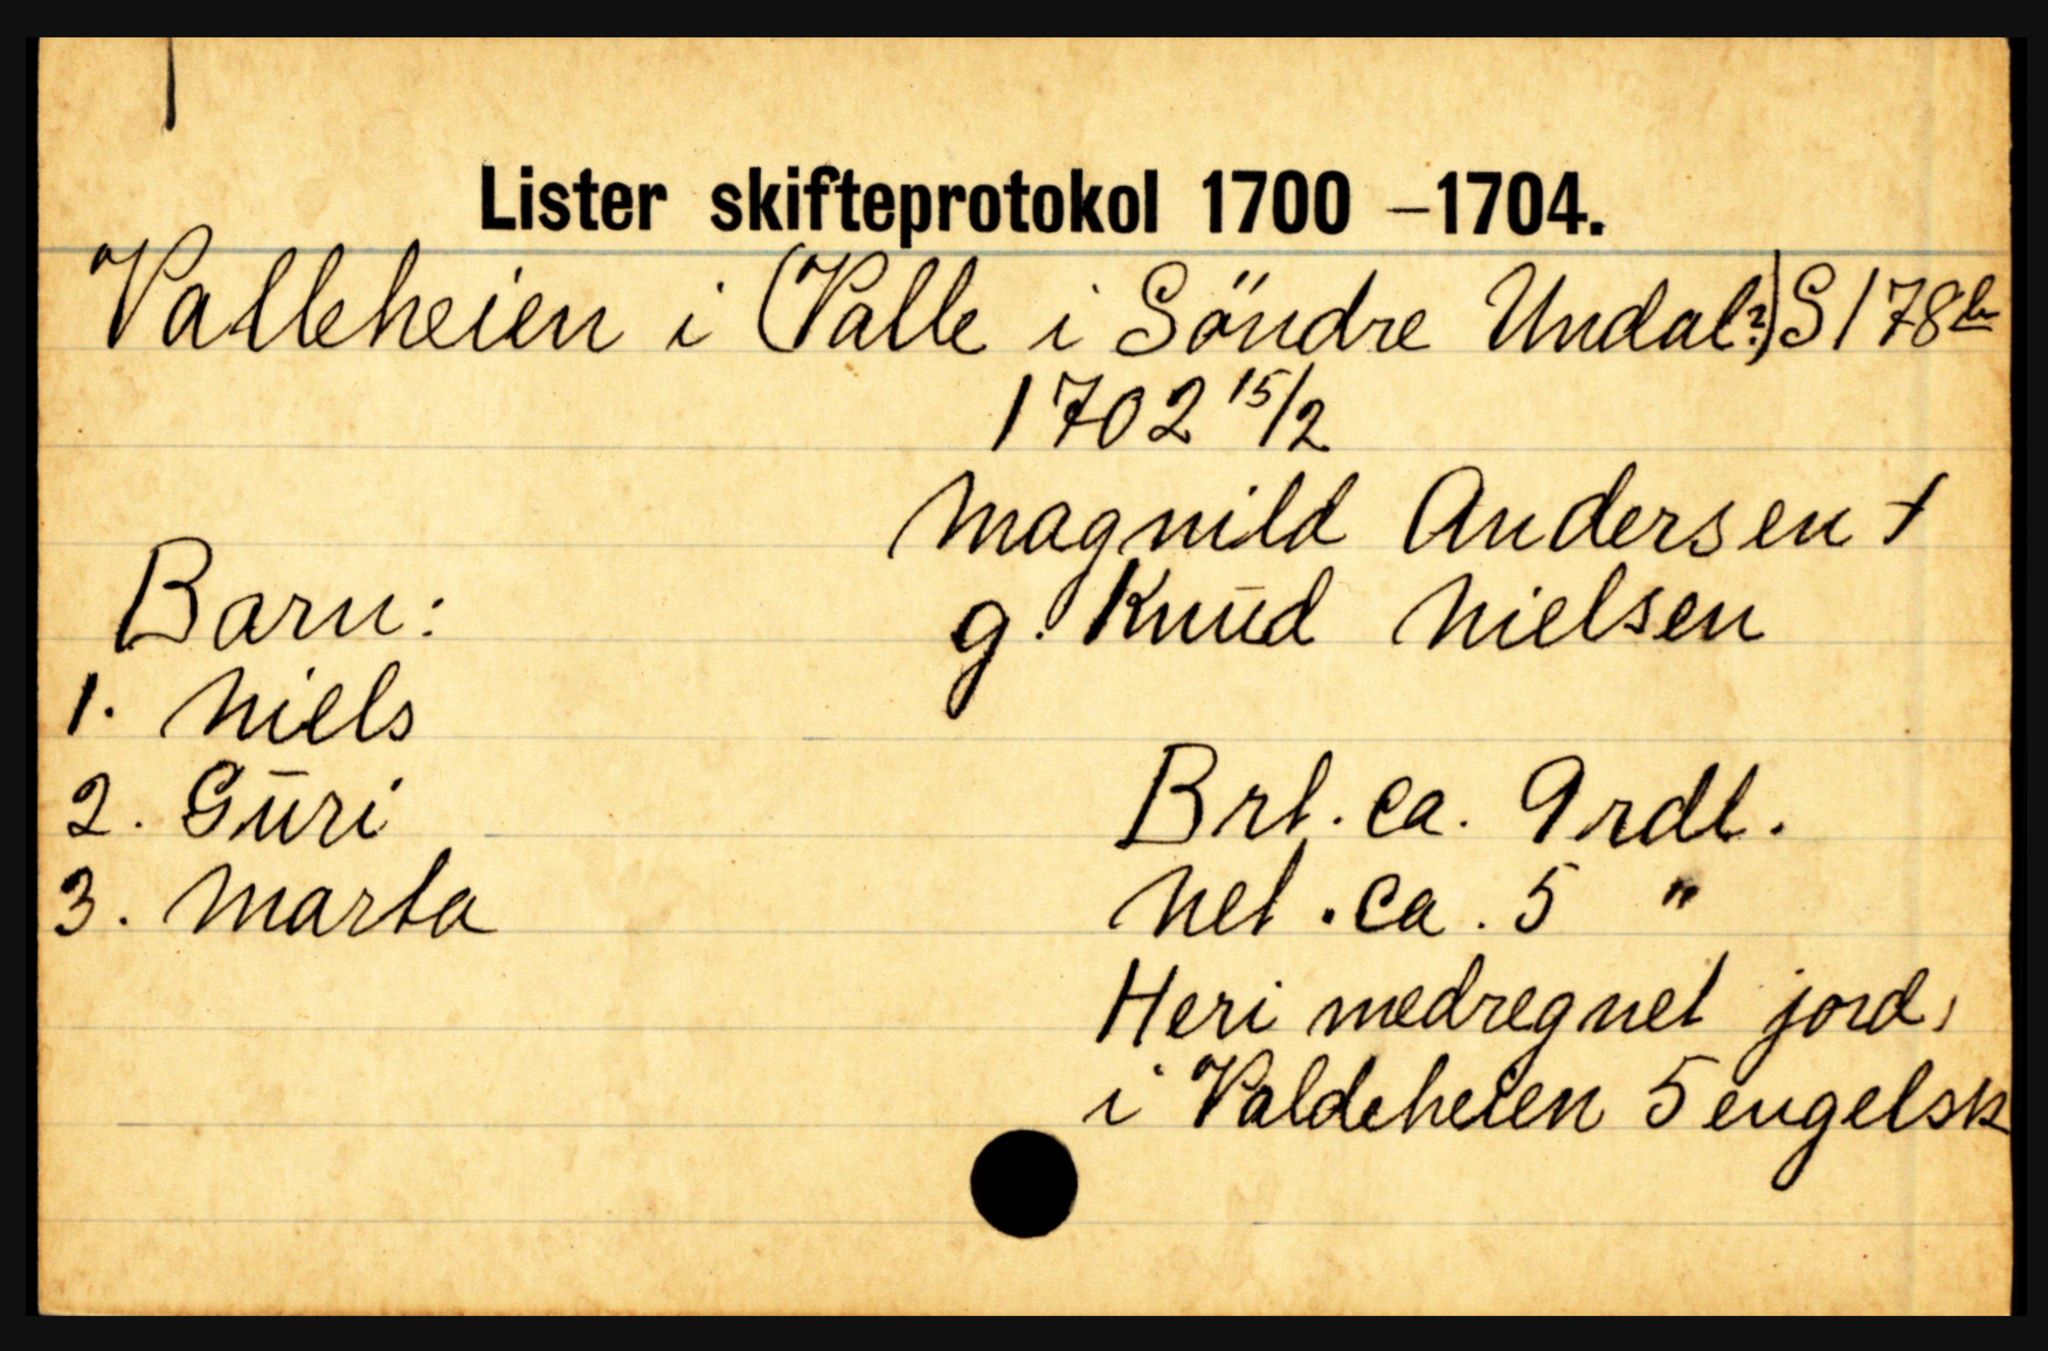 Lister skifteprotokol 1700 – 1704.
Valleheien i (Valle i Söndre Undal?) S 178b
1702 15/2
Magnild Andersen +
Barn:
g. Knud Nielsen
1. Niels
2. Guri
Brt. ca. 9 rdl.
3. Marta
Net. ca. 5 "
Heri medregnet jord,
i Valdeheien 5 engelsk